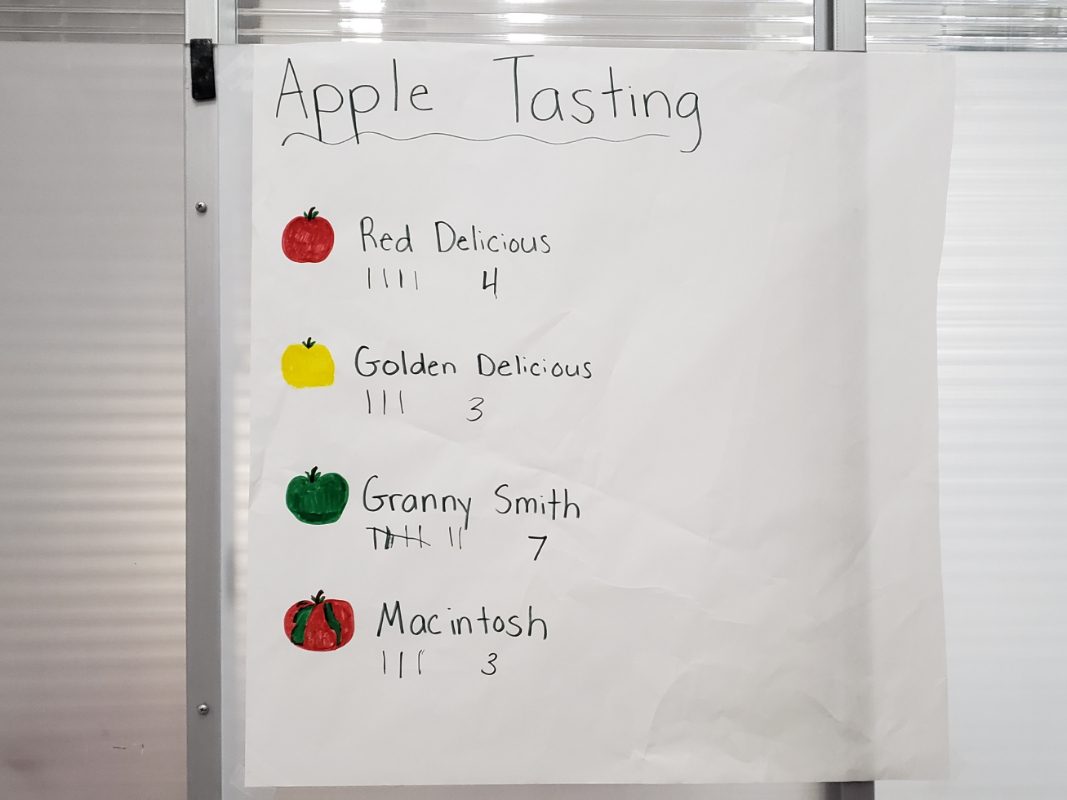 Apple Tasting
Red Delicious
|||| 4
Golden Delicious
||| 3
Granny Smith
|||| || 7
Macintosh
||| 3